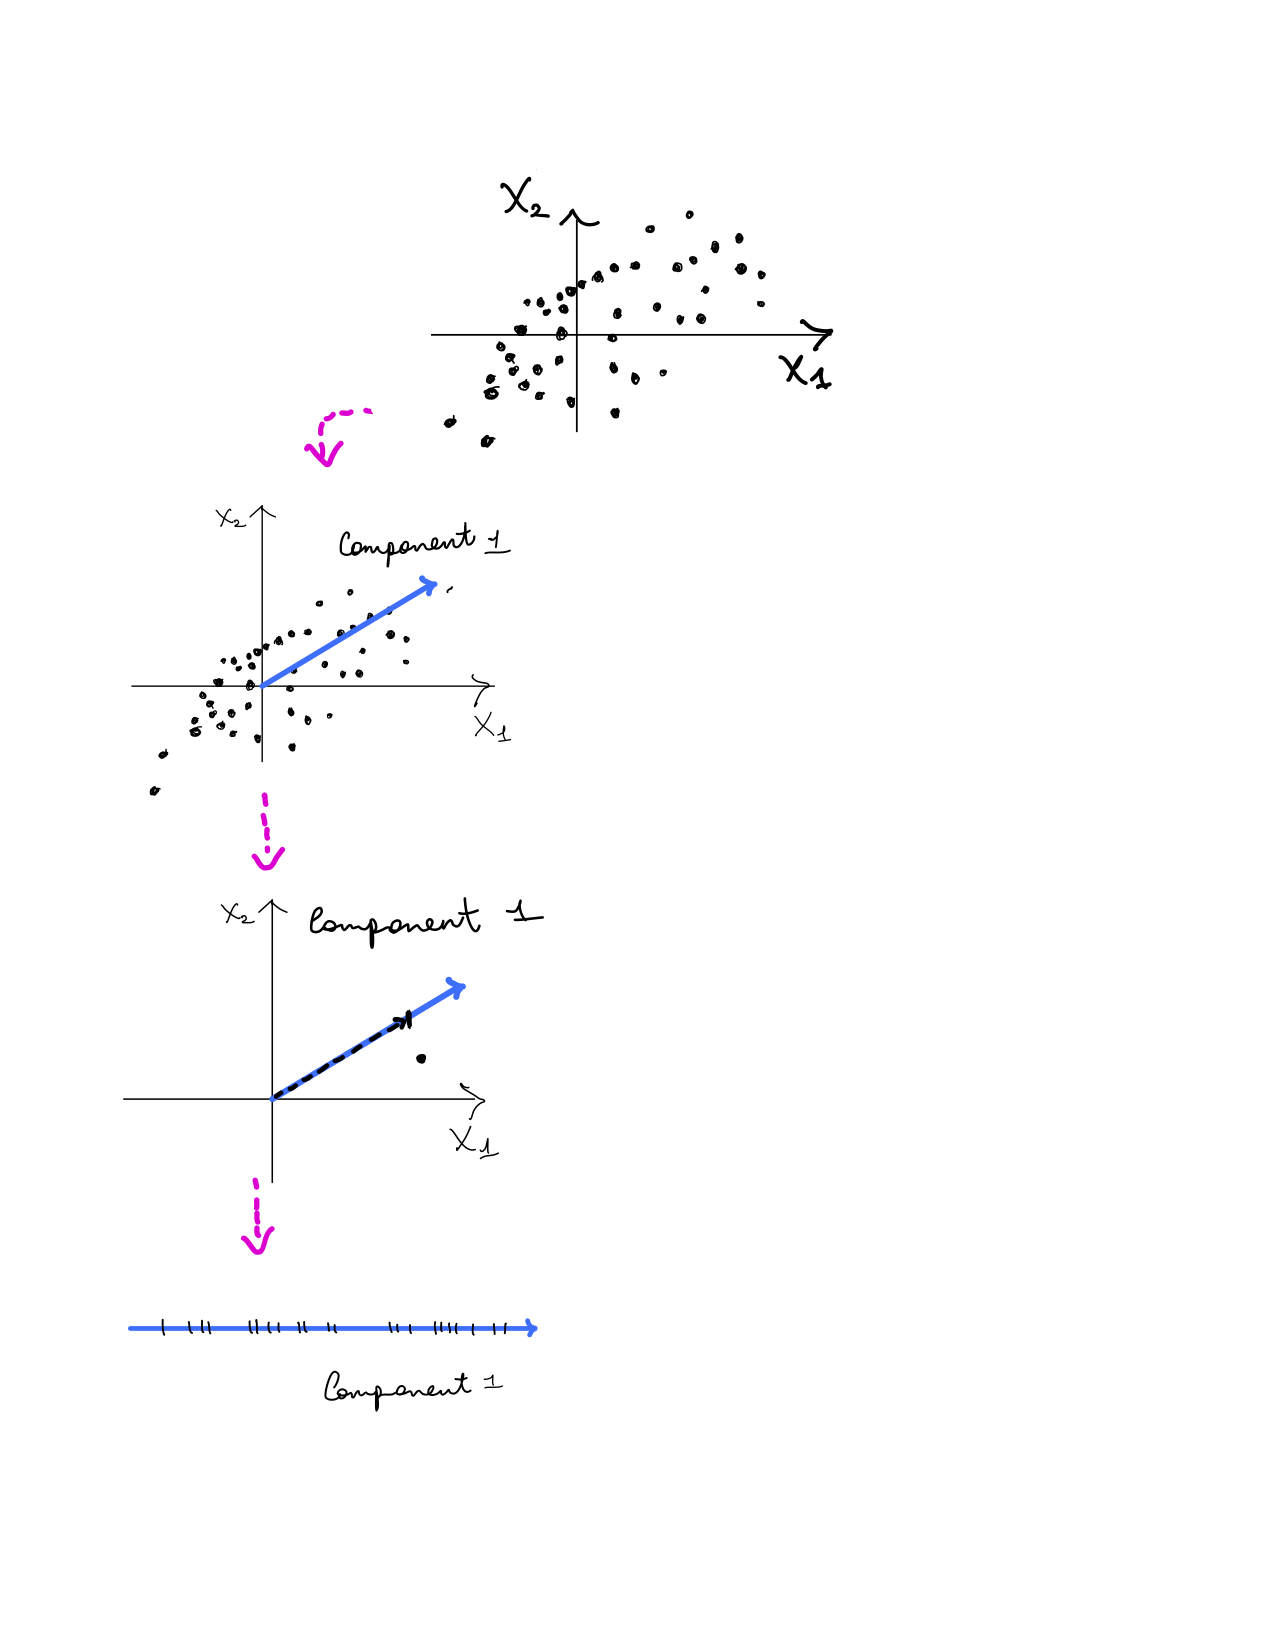 X2
X1
X2
Component 1
X1
X2
Component 1
X1
Component 1